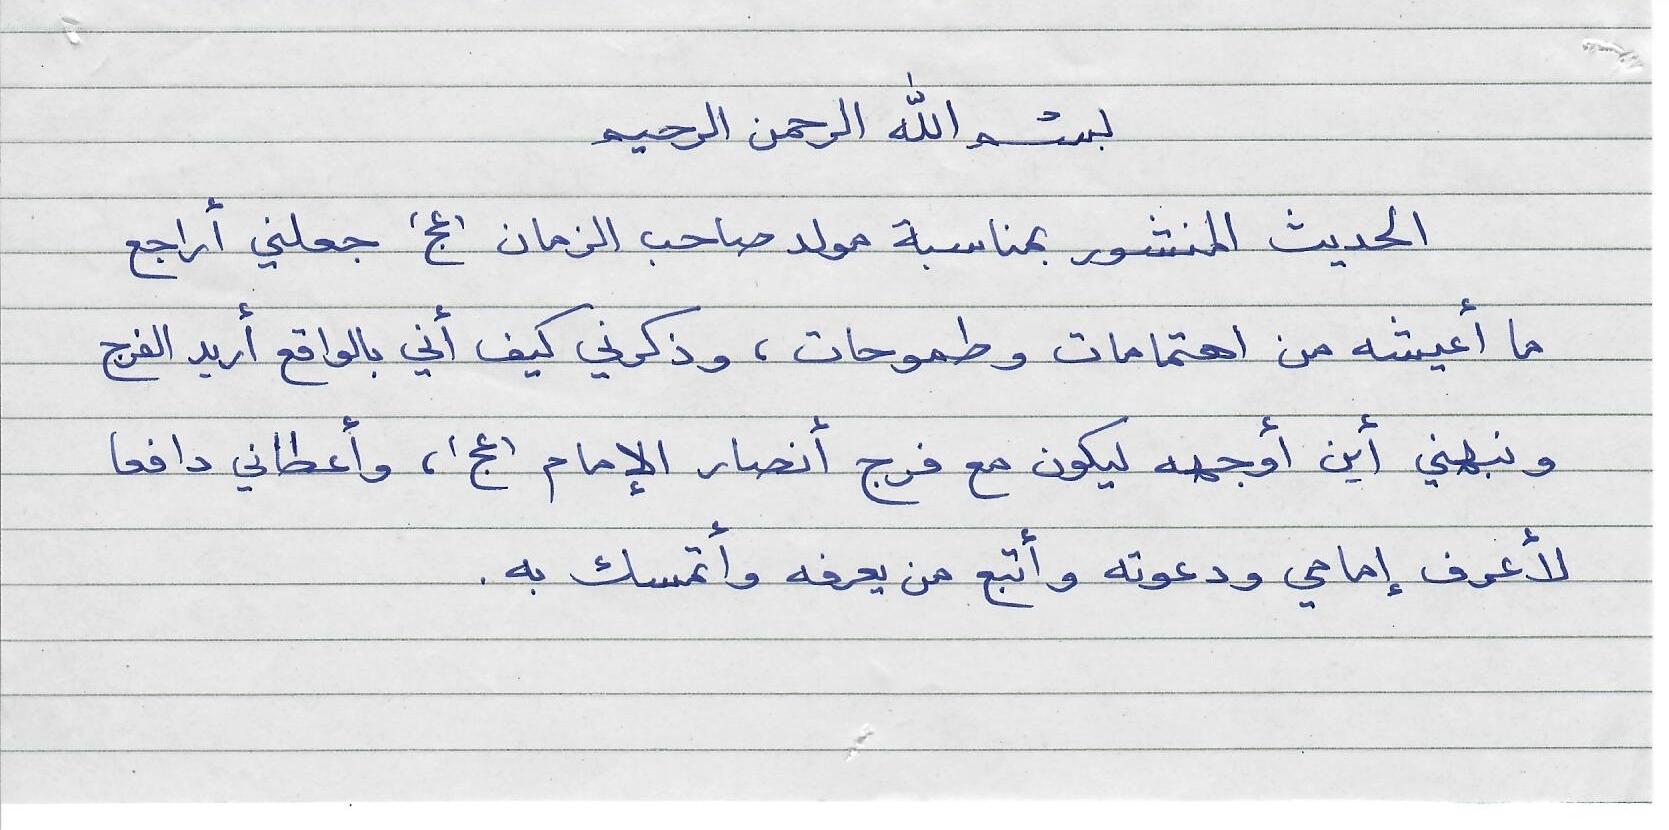 بسم الله الرحمن الرحيم
الحديث المنشور بمناسبة مولد صاحب الزمان (عج) جعلني أراجع
ما أعيشه من اهتمامات وطموحات ، وذكرني كيف أني بالواقع أريد الفرج
ونبهني أين أوجهه ليكون مع فرج أنصار الإمام (عج) ، وأعطاني دافعا
لأعرف إمامي ودعوته وأتبع من يعرفه وأتمسك به .